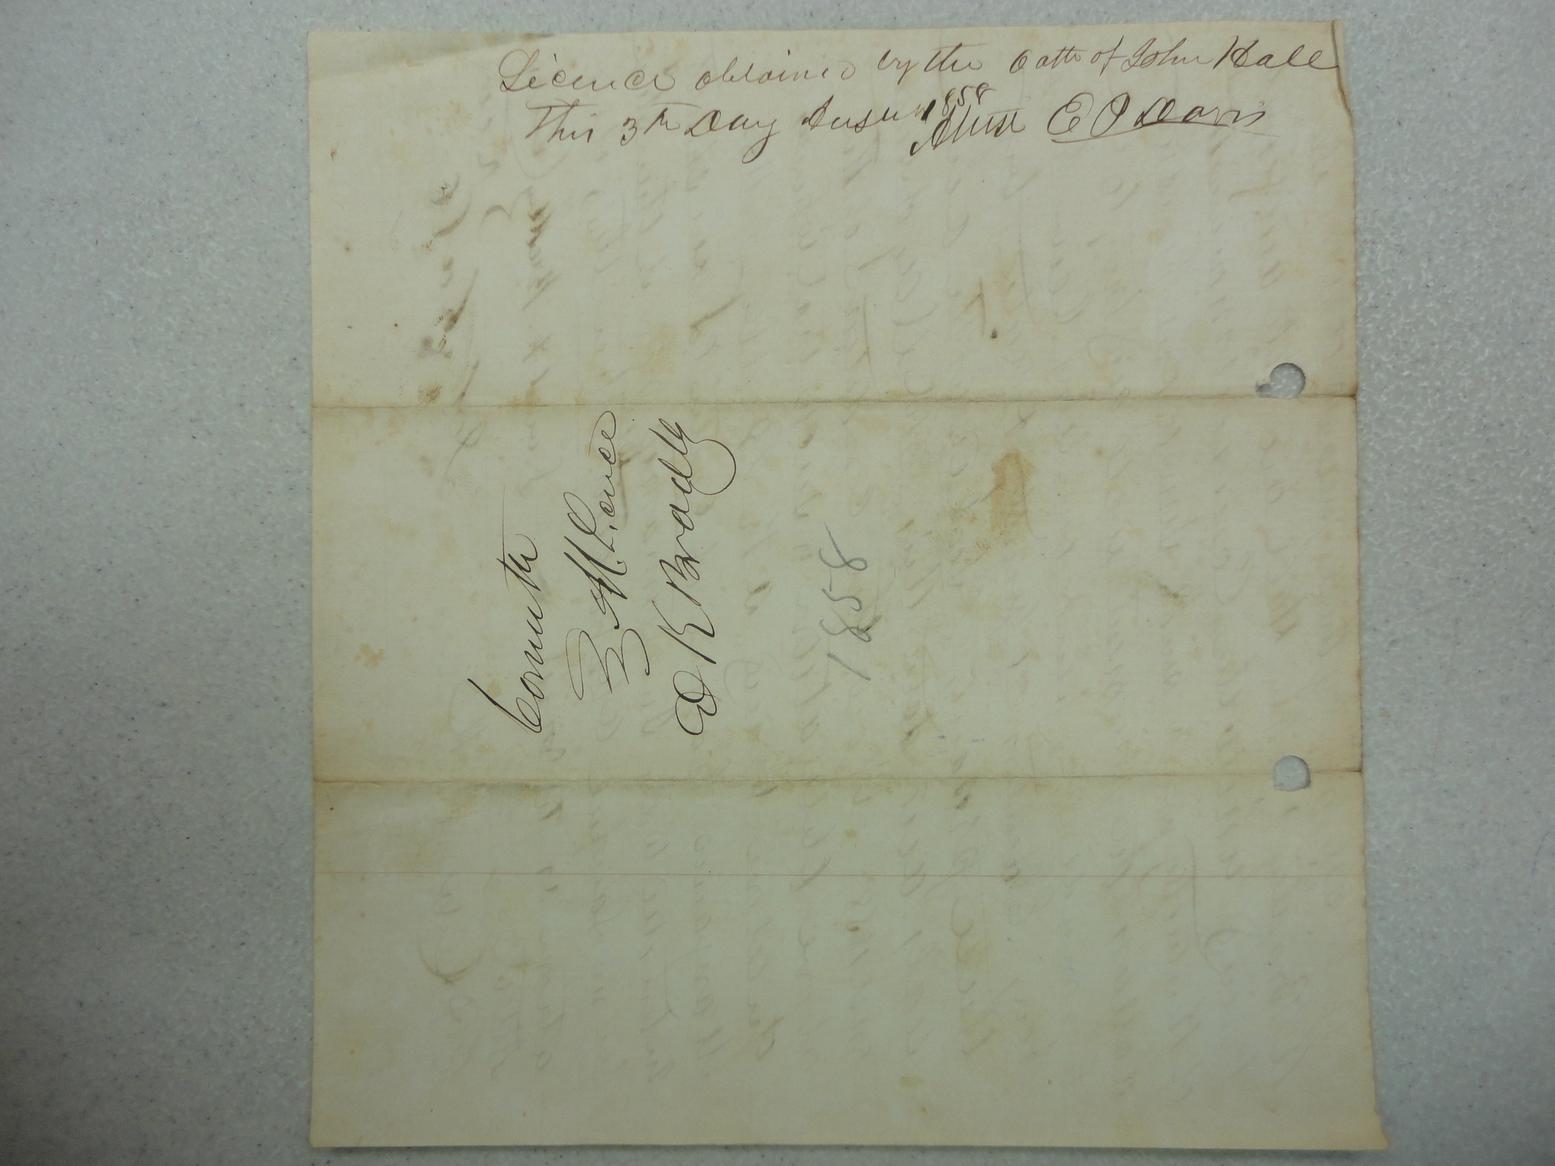 Licence obtained by the oath of John Hall
This 3rd Day August 1858 Attest E P Davis
Consent
Z M Lance
D K Bradly
1858